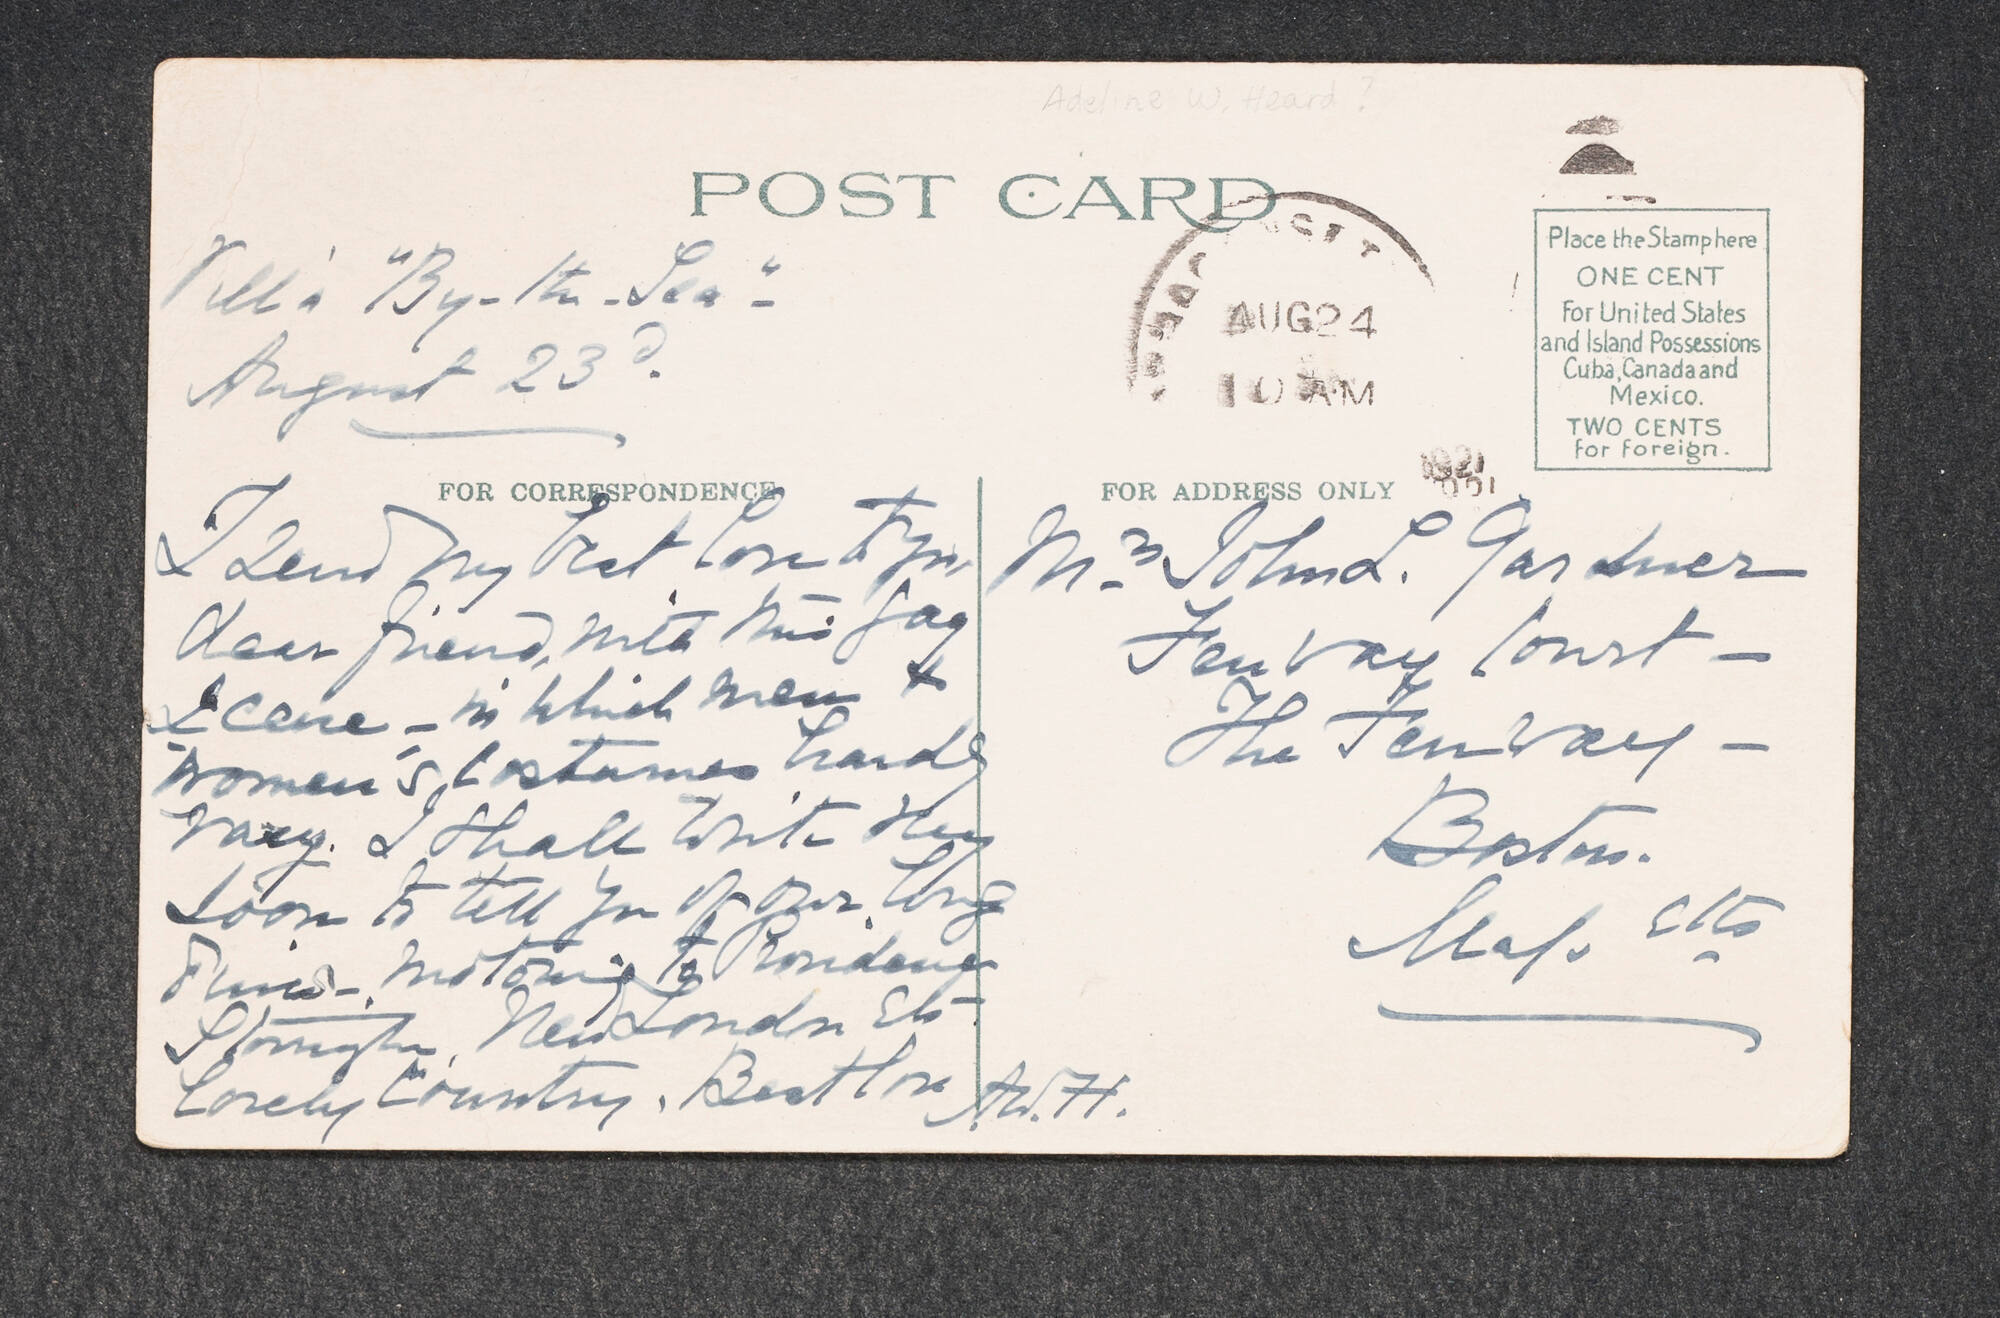 Adeline W. Heard?
POST CARD
AUG 24
10 AM
1921
Place the Stamp here
ONE CENT
For United States
and Island Possessions
Cuba, Canada and
Mexico.
TWO CENTS
for foreign.
Villa "By-the-Sea"-
August 23d.
FOR CORRESPONDENCE
I send my best love to you,
dear friend, with this gay
scene - in which men &
women's costumes hardly
vary. I shall write very
soon to tell you of our long
drives - motoring to Providence
Stonington, New London etc
Lovely Country. Best love A.W.H.
FOR ADDRESS ONLY
Mrs John L. Gardner
Fenway Court -
The Fenway -
Boston.
Mass etts